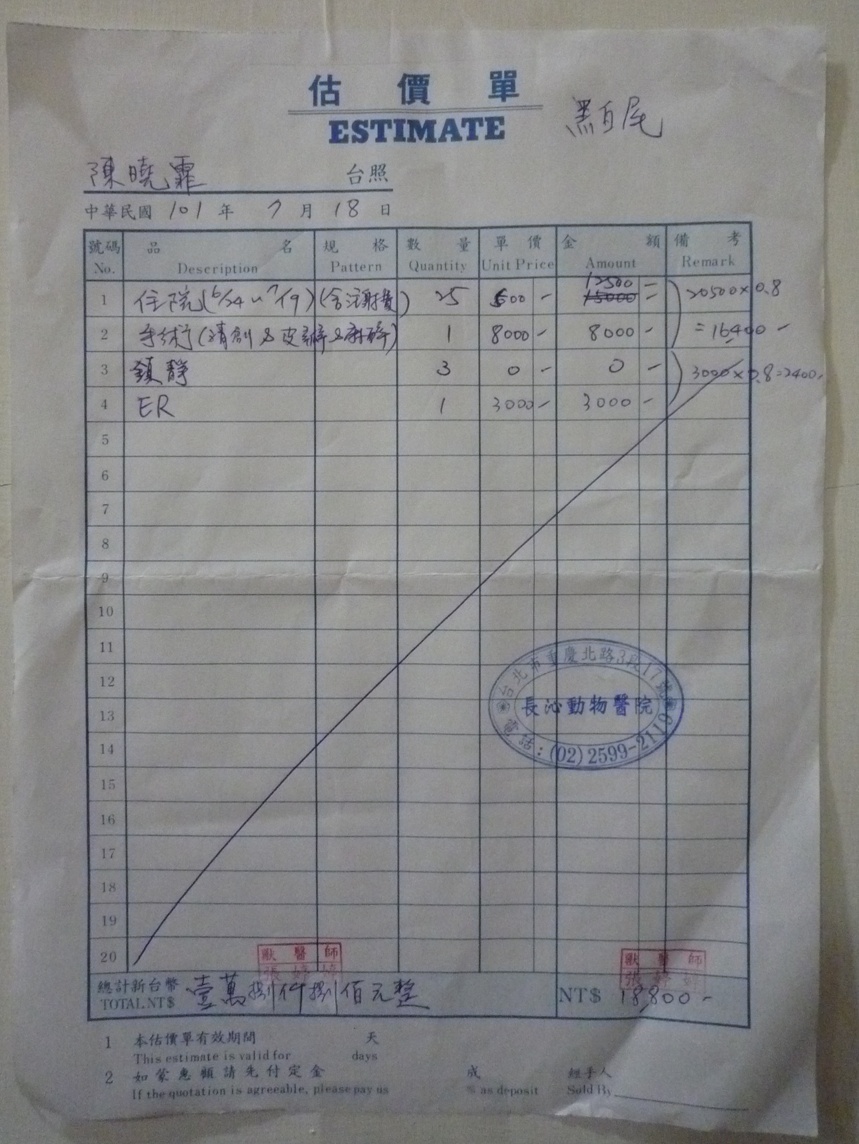 估價單
ESTIMATE
黑白尾
陳曉霏 台照
中華民國 101 年 7 月 18 日
號碼 品名 規格 數量 單價 金額 備考
No. Description Pattern Quantity Unit Price Amount Remark
12500-
1 住院(6/24~7/9)(含注射費) 25 500- 15000- 20500×0.8
2 手術(清創及皮瓣及麻醉) 1 8000- 8000- =16400-
3 鎮靜 3 0- 0- 3000×0.8=2400-
4 ER 1 3000- 3000-
5
6
7
8
9
10
11
12
13
14
15
16
17
18
19
20
台北市重慶北路3段17號
長沁動物醫院
電話:(02)2599-2119
獸醫師
獸醫師
總計新台幣 壹萬捌仟捌佰元整
TOTAL NT$ NT$ 18,800-
1 本估價單有效期間 天
This estimate is valid for days
2 如蒙惠顧請先付定金 成 經手人
If the quotation is agreeable, please pay us % as deposit Sold By